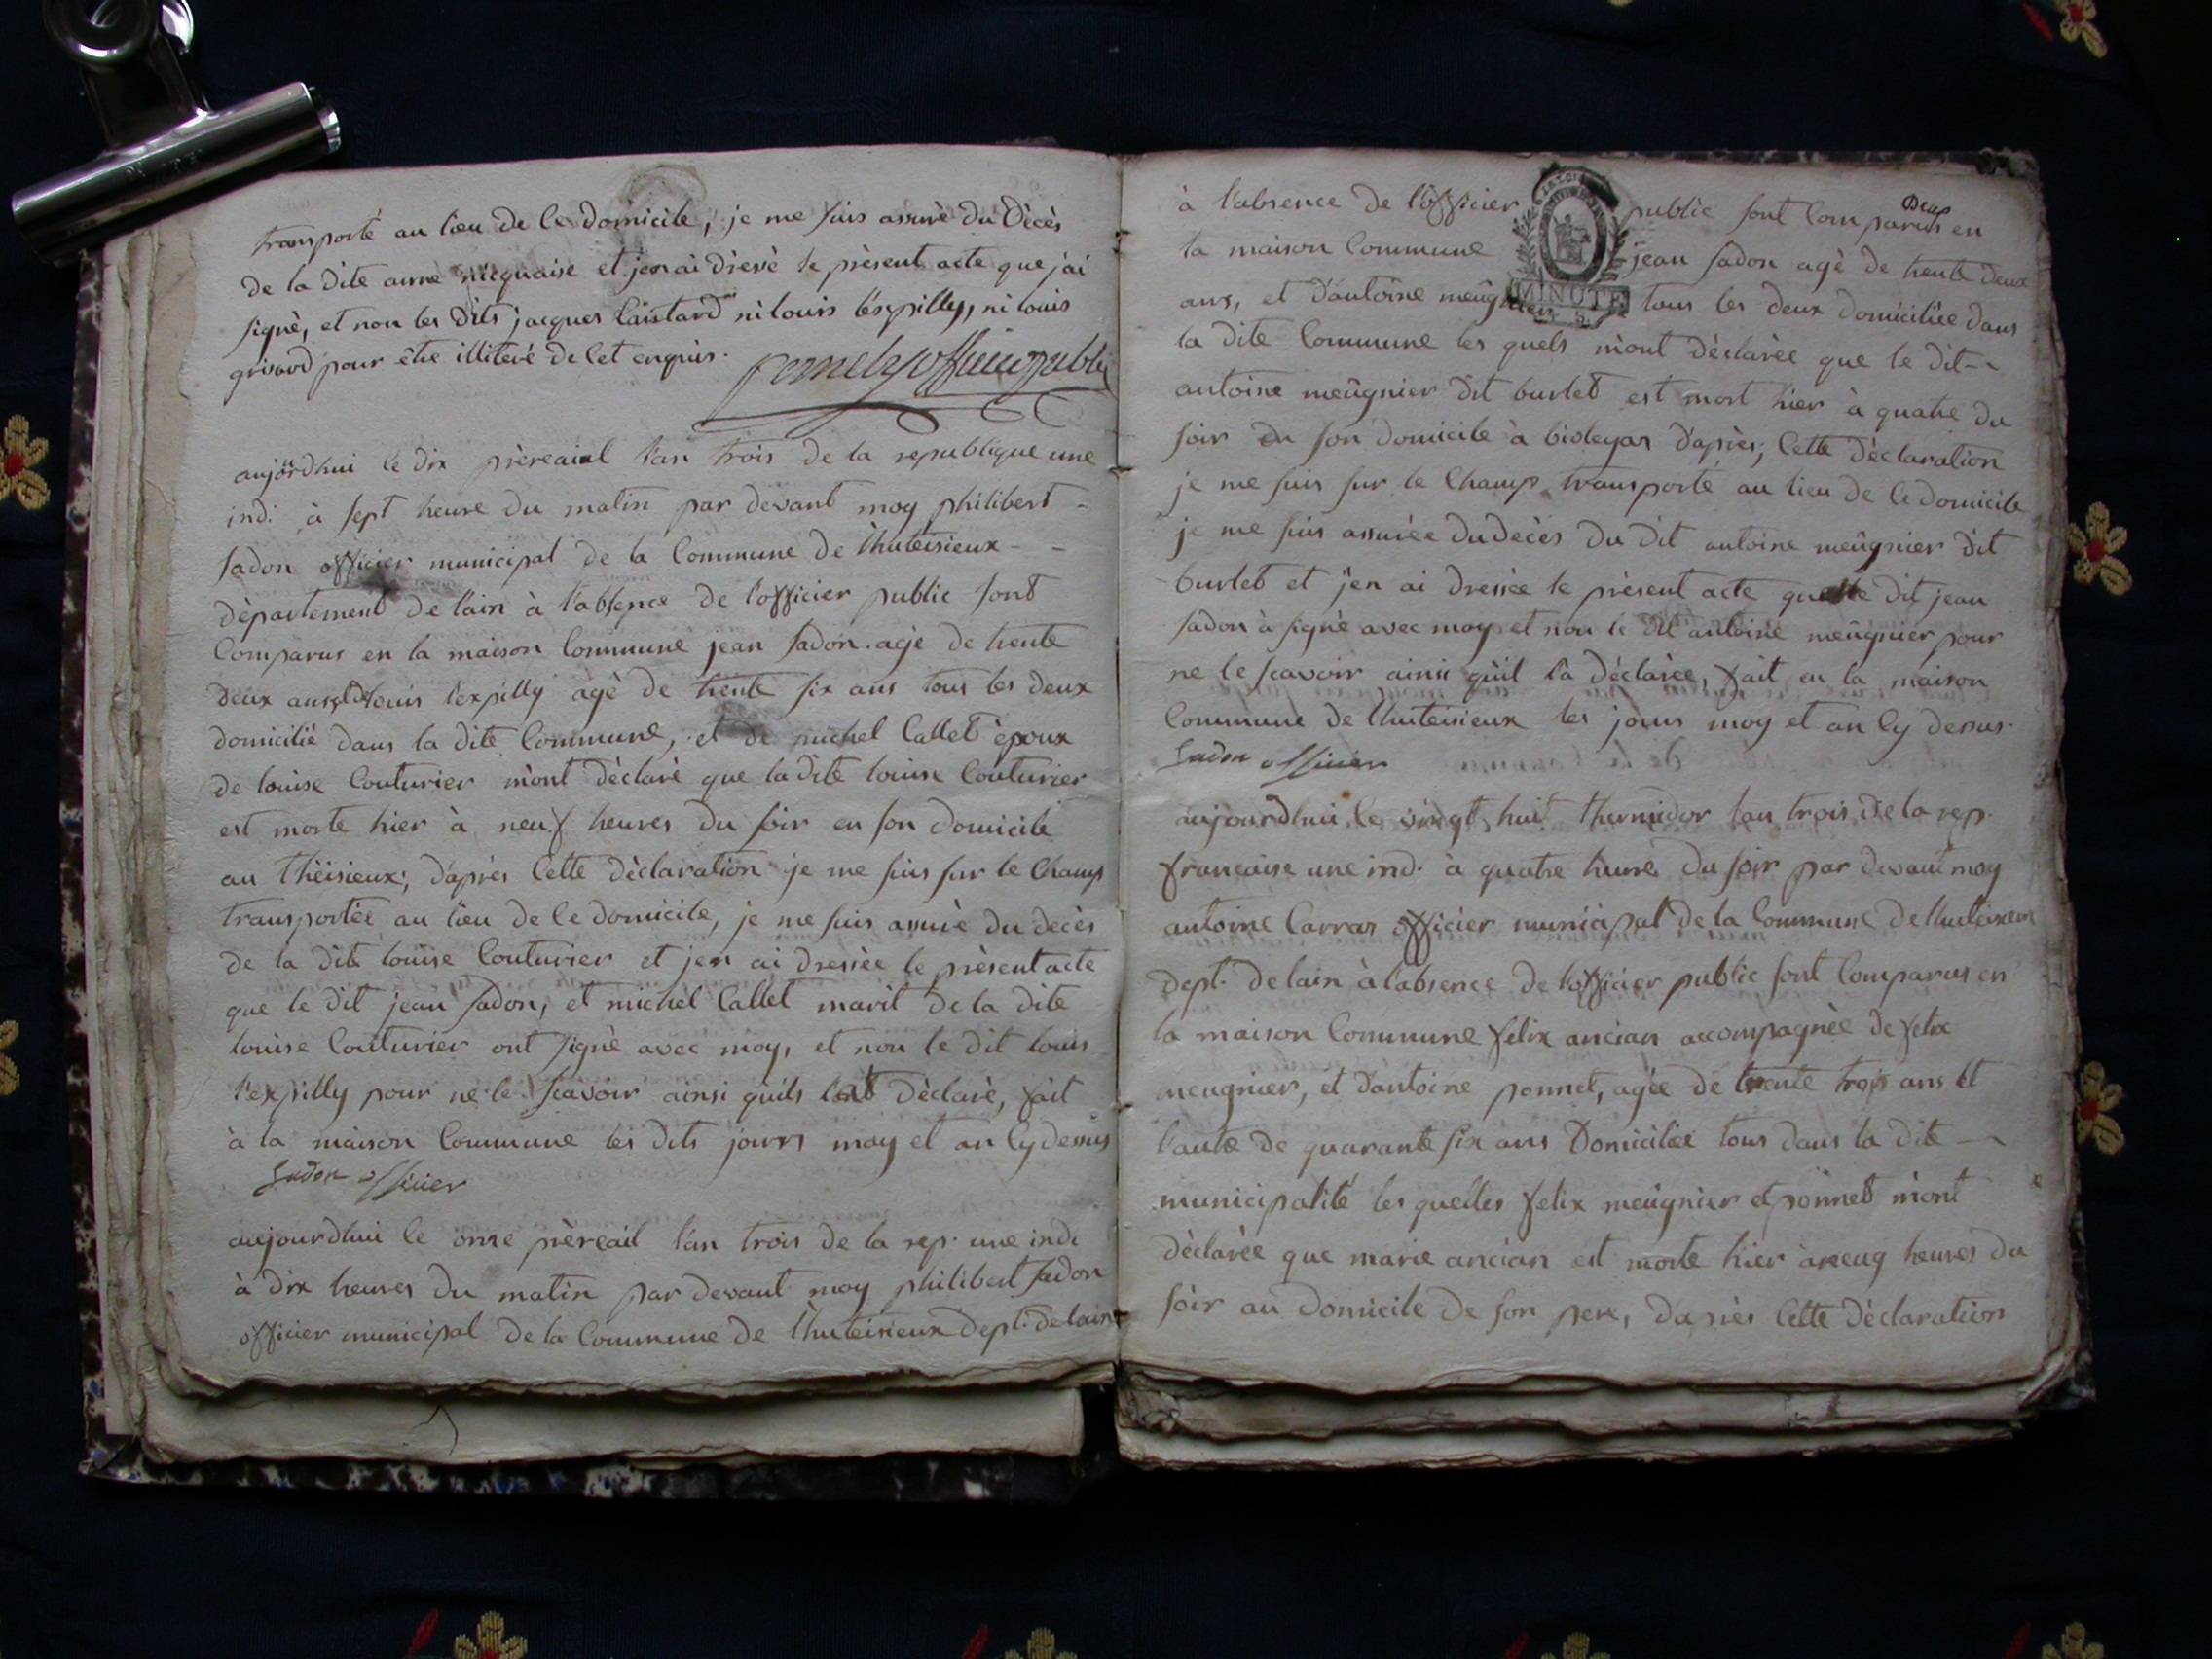 transporté au lieu de ce domicile, je me suis assuré du Décès
de la dite anne micquaise et jen ai dressé le présent acte que j'ai
signé, et non les dits jacques lautard ni louis l'éspilly, ni louis
grivod pour être illiteré de cet enquis.
officier public
aujourdhui le dix prèreaial l'an trois de la republique une
ind. à sept heure du matin par devant moy philibert -
sadon officier municipal de la Commune de Thuteisieux - -
département de l'ain à l'absence de l'officier public sont
Comparus en la maison Commune jean sadon agé de trente
deux ans, et louis l'expilly agé de trente six ans tous les deux
domicilié dans la dite Commune, et de michel Callet èpoux
de louise Couturier m'ont dèclaré que la dite louise Couturier
est morte hier à neuf heures du soir en son domicile
au Thèisieux; d'après Cette dèclaration je me suis sur le Champ
transportée au lieu de ce domicile, je me suis assuré du decès
de la dite louise Couturier et jen ai dressée le présent acte
que le dit jean sadon, et michel Callet marit de la dite
louise Couturier ont signé avec moy, et non le dit louis
l'expilly pour ne le sçavoir ainsi quils l'ont Dèclaré, fait
à la maison Commune les dits jours moy et an Cy dessus
Sadon officier
aujourdhui le onze prèreail l'an trois de la rep. une indi
à dix heures du matin par devant moy philibert sadon
officier municipal de la Commune de Thuteisieux dept. de lain
à l'absence de l'officier public sont Comparus en
Deup
la maison Commune jean sadon agé de trente deux
ans, et d'antoine meûgnier tous les deux domiciliée dans
la dite Commune les quels m'ont dèclarée que le dit -
antoine meûgnier dit burlet est mort hier à quatre du
soir en son domicile à bioleyas d'après, Cette dèclaration
je me suis sur le Champ transporté au lieu de ce domicile
je me suis assurée du decès du dit antoine meûgnier dit
burlet et j'en ai dressée le présent acte que le dit jean
sadon à signé avec moy et non le dit antoine meûgnier pour
ne le sçavoir ainsi qu'il l'a dèclarée, fait en la maison
Commune de Thuteisieux les jours moy et an Cy dessus.
Sadon officier
aujourdhui le vingt huit thermidor lan trois de la rep.
francaise une ind. à quatre heure du soir par devant moy
antoine Carraz officier municipal de la Commune de Thuteisieux
dept. de lain à labsence de lofficier public sont Comparus en
la maison Commune felix ancian accompagnée de felix
meugnier, et d'antoine ponnet, agée de trente trois ans et
l'autre de quarante six ans Domiciliée tous dans la dite -
municipalité les quelles felix meûgnier et ponnet m'ont
dèclarée que marie ancian est morte hier à neug heures du
soir au domicile de son pere, d'après Cette dèclaration
MINUTE